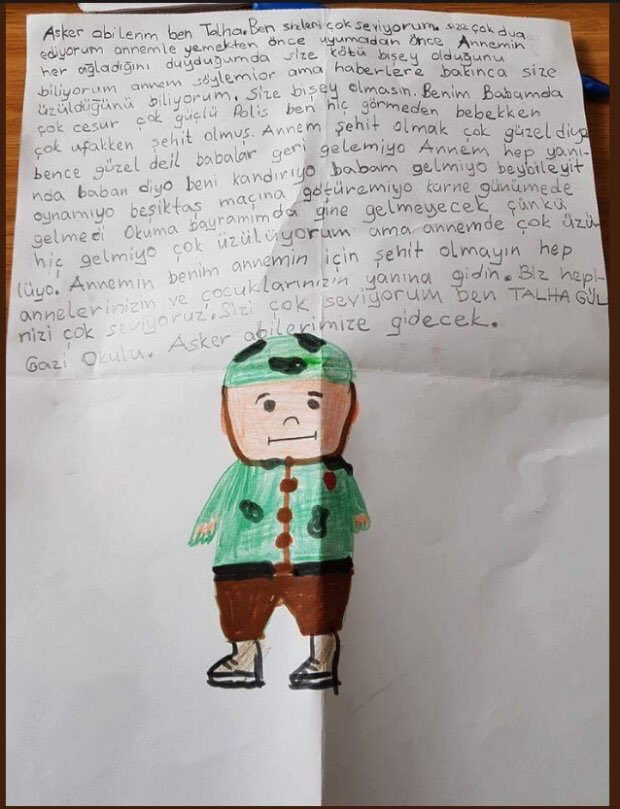 Asker abilerim ben Talha. Ben sizleri çok seviyorum. size çok dua
ediyorum annemle yemekten önce uyumadan önce Annemin
her ağladığını duyduğumda size kötü bişey olduğunu
biliyorum annem söylemior ama haberlere bakınca size
üzüldüğünü biliyorum. Size bişey olmasın. Benim Babamda
çok cesur çok güçlü Polis ben hiç görmeden bebekken
çok ufakken şehit olmuş. Annem şehit olmak çok güzel diyo
bence güzel deil babalar geri gelemiyo Annem hep yanı-
nda baban diyo beni kandırıyo babam gelmiyo beybileyit
oynamıyo beşiktaş maçına götüremiyo karne günümede
gelmedi Okuma bayramımda gine gelmeyecek çünkü
hiç gelmiyo çok üzülüyorum ama annemde çok üzü-
lüyo. Annemin benim annemin için şehit olmayın hep
annelerinizin ve çocuklarınızın yanına gidin. Biz hepi-
nizi çok seviyoruz. Sizi çok seviyorum ben TALHA GÜL
Gazi Okulu. Asker abilerimize gidecek.